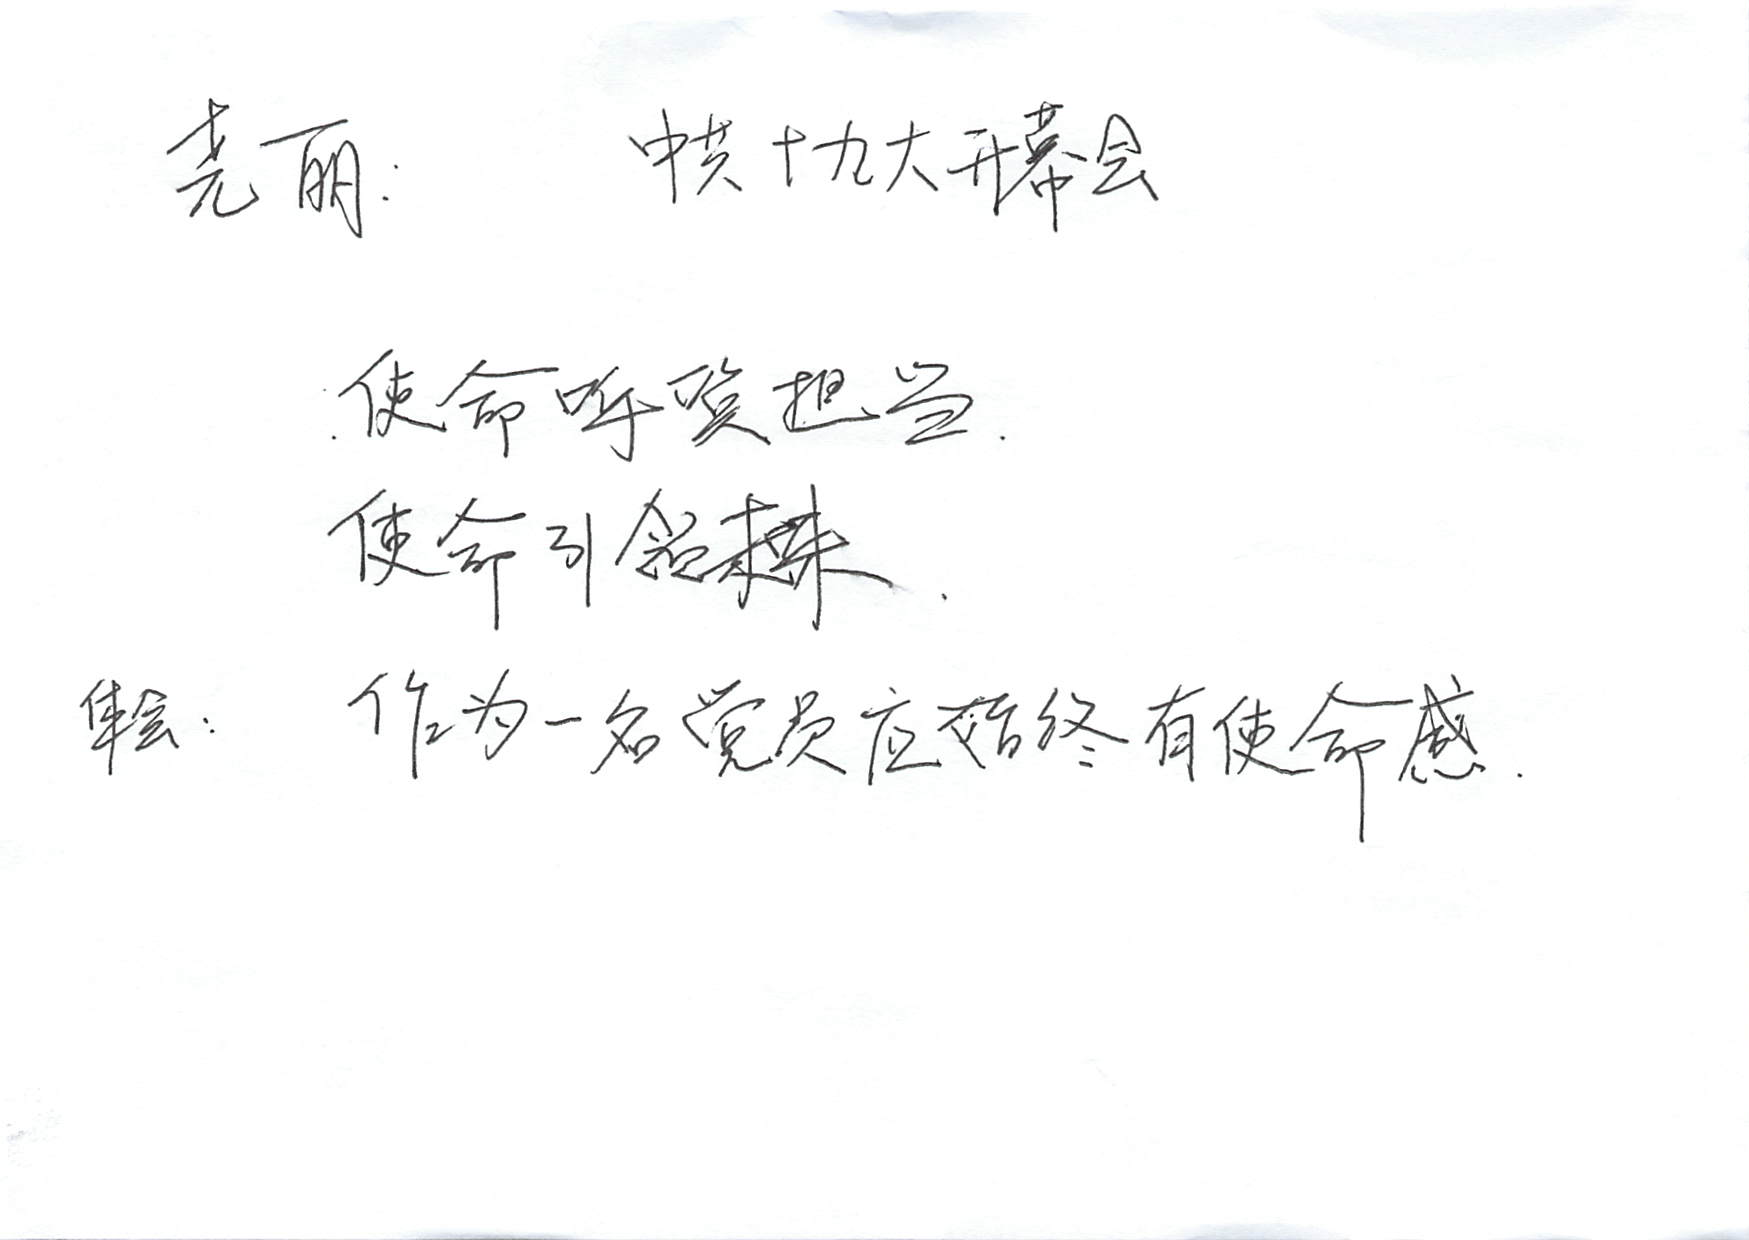 尧丽： 中共十九大开幕会
使命呼唤担当.
使命引领未来.
体会： 作为一名党员应始终有使命感.